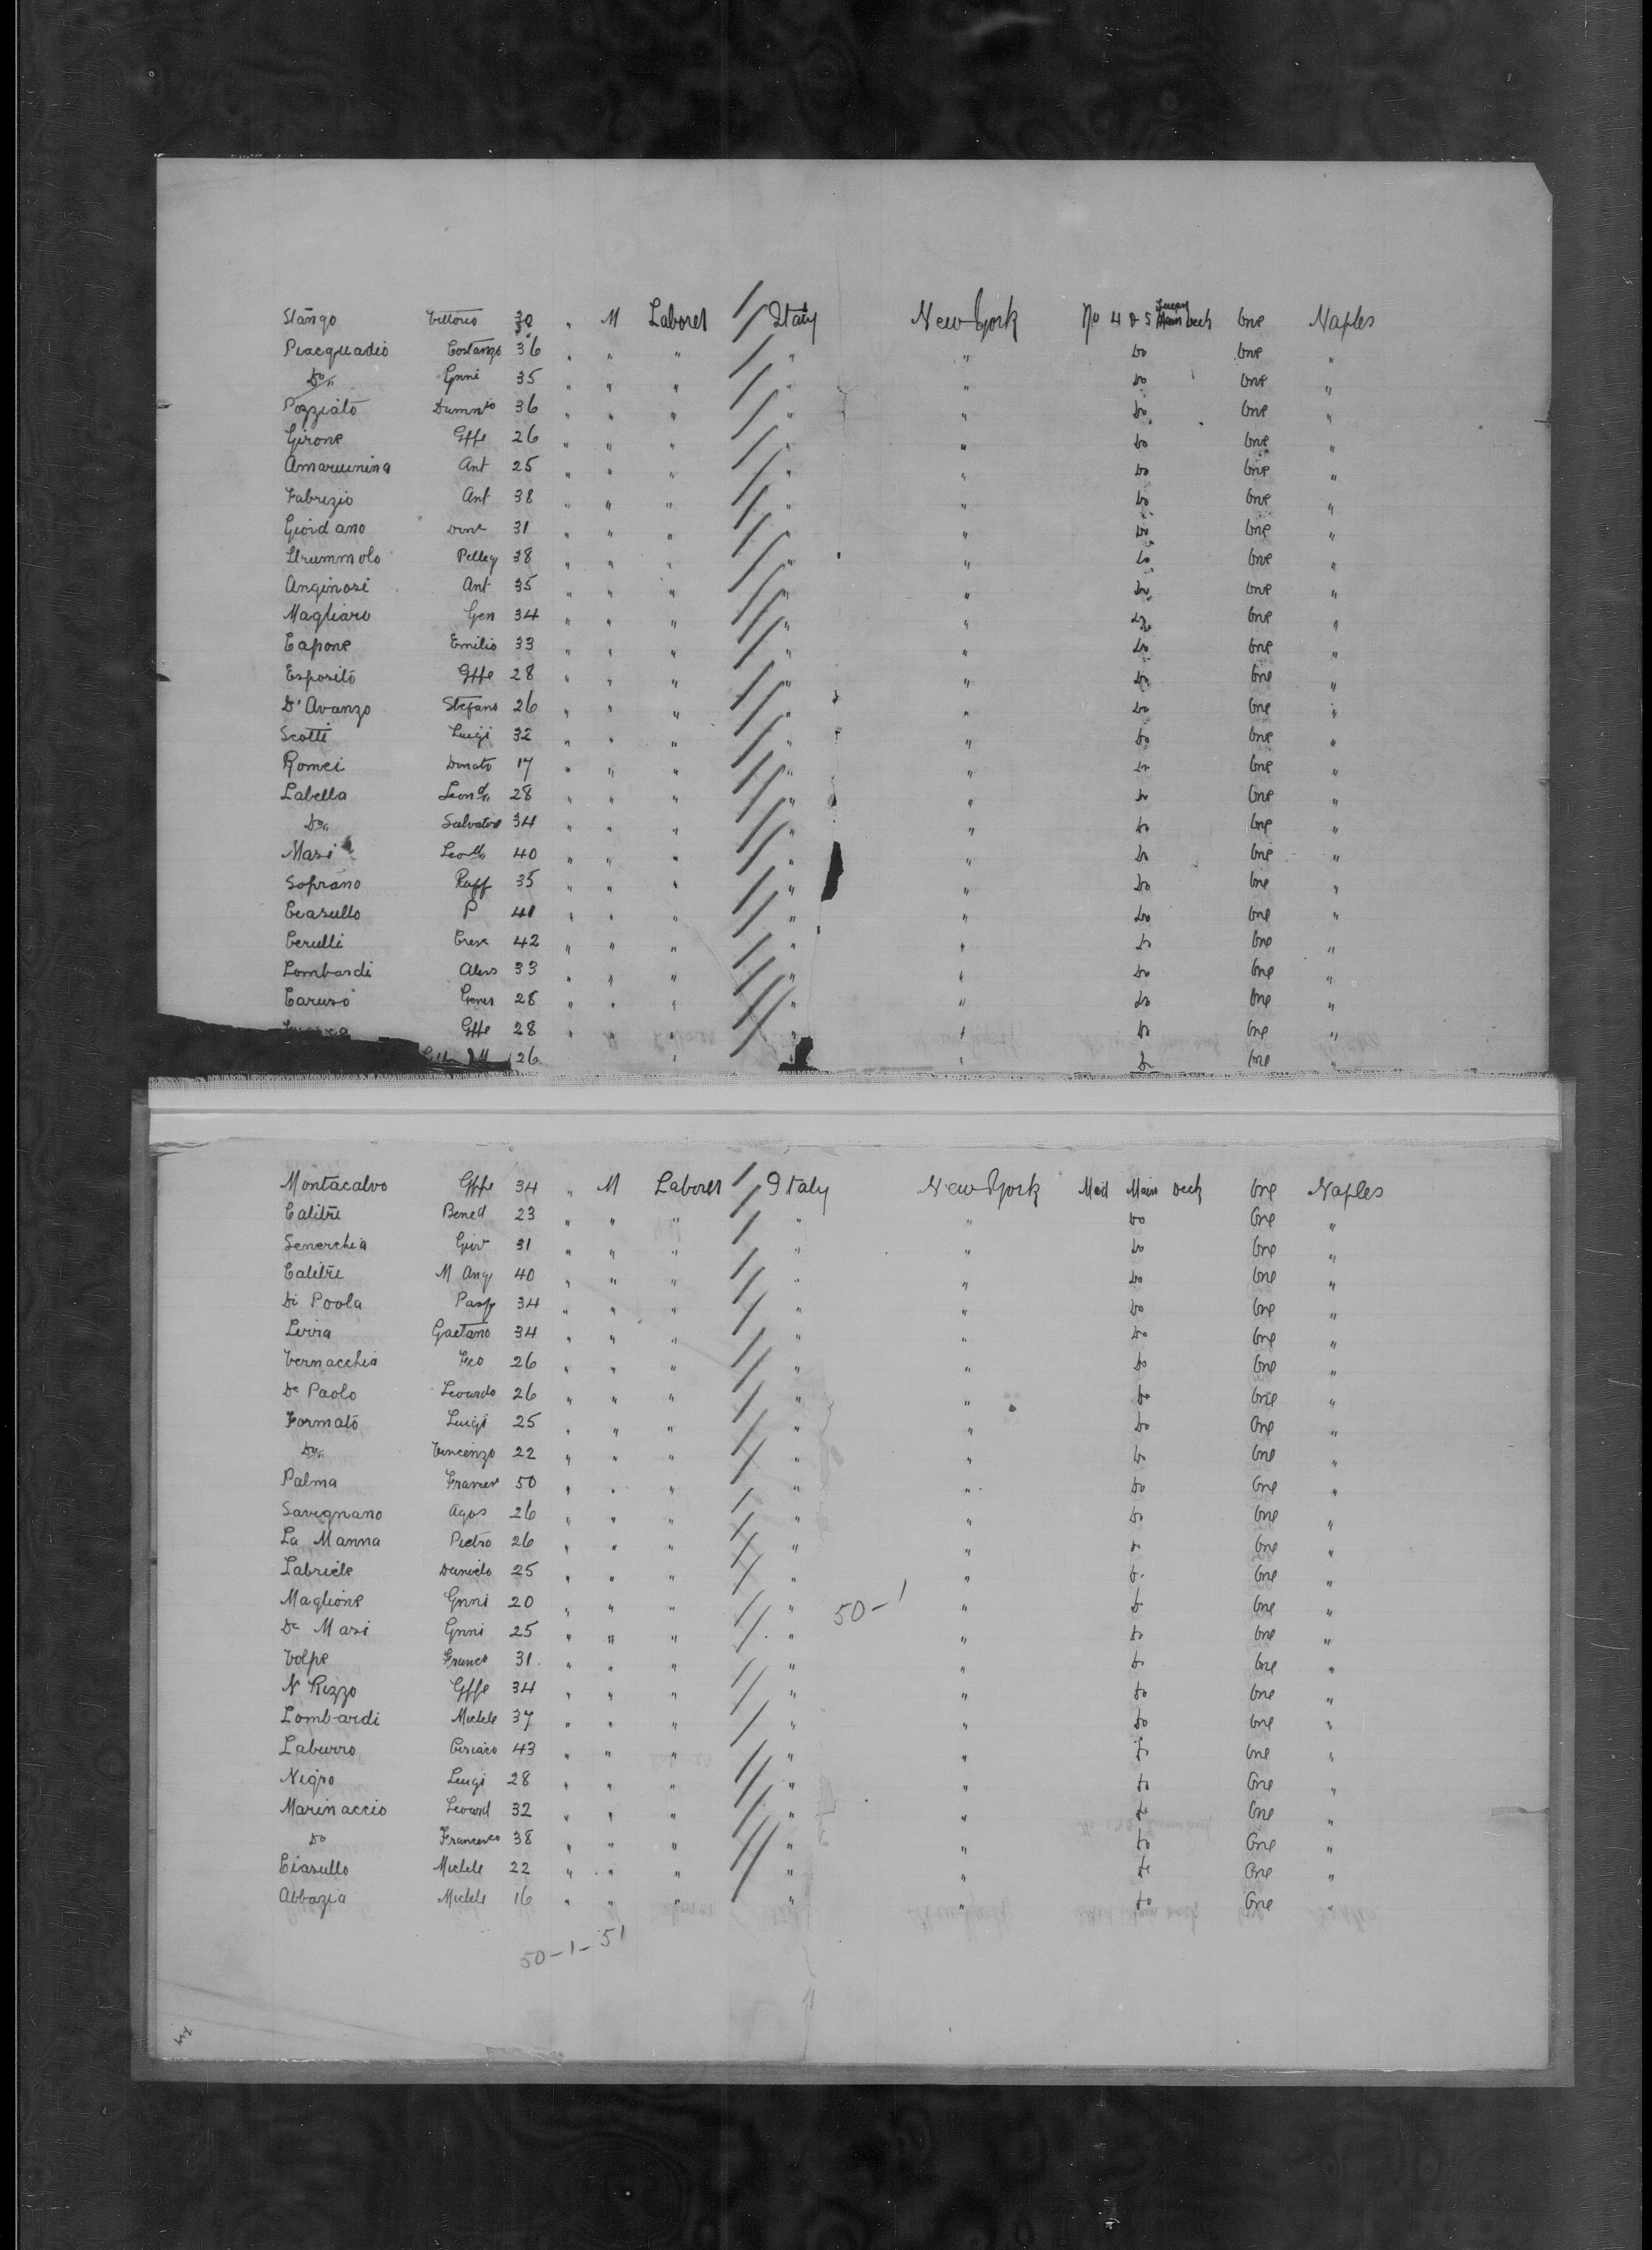 Stango Vittorio 30 " M Laborer Italy New York No 4 & 5 Main Deck One Naples
Piacquadio Costanzo 36 " " " " " Do One "
Do Gnni 35 " " " " " Do One "
Pozziato 36 " " " " " Do One "
Girone Gffe 26 " " " " " Do One "
Ant 25 " " " " " Do One "
Fabrizio Ant 38 " " " " " Do One "
Giordano 31 " " " " " Do One "
Strummolo Pelleg 38 " " " " " Do One "
Anginosi Ant 35 " " " " " Do One "
Magliaro Gen 34 " " " " " Do One "
Capone Emilio 33 " " " " " Do One "
Esposito Gffe 28 " " " " " Do One "
D'Avanzo Stefano 26 " " " " " Do One "
Scotti Luigi 32 " " " " " Do One "
Romei Donato 17 " " " " " Do One "
Labella Leond 28 " " " " " Do One "
Do Salvatore 34 " " " " " Do One "
Masi 40 " " " " " Do One "
Soprano Raff 35 " " " " " Do One "
Ciasullo P 41 " " " " " Do One "
Cerulli Cresc 42 " " " " " Do One "
Lombardi Aless 33 " " " " " Do One "
Caruso 28 " " " " " Do One "
Gffe 28 " " " " " Do One "
M 26 " Do One "
Montacalvo Gffe 34 " M Laborer Italy New York Mid Main Deck One Naples
Calitri Bened 23 " " " " " Do One "
Senerchia Giov 31 " " " " " Do One "
Calitri M Ang 40 " " " " " Do One "
Di Poola Pasq 34 " " " " " Do One "
Gaetano 34 " " " " " Do One "
Vernacchia Fco 26 " " " " " Do One "
De Paolo Leonardo 26 " " " " " Do One "
Formato Luigi 25 " " " " " Do One "
Do Vincenzo 22 " " " " " Do One "
Palma Francer 50 " " " " " Do One "
Savignano Agos 26 " " " " " Do One "
La Manna Pietro 26 " " " " " Do One "
Labriele Daniele 25 " " " " " Do One "
Maglione Gnni 20 " " " " 50-1 " Do One "
De Masi Gnni 25 " " " " " Do One "
Volpe Franco 31 " " " " " Do One "
N Rizzo Gffe 34 " " " " " Do One "
Lombardi Michele 37 " " " " " Do One "
Laburro Ciriaco 43 " " " " " Do One "
Negro Luigi 28 " " " " " Do One "
Marinaccio Leonard 32 " " " " " Do One "
Do Francesco 38 " " " " " Do One "
Ciasullo Michele 22 " " " " " Do One "
Abbazia Michele 16 " " " " " Do One "
50-1-51